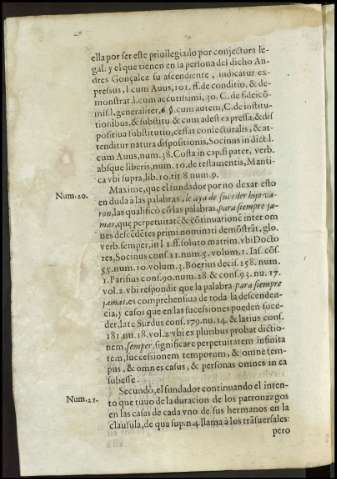 ella por ser este priuilegiado por conjectora le-
gal. y el que tienen en la persona del dicho An
dres Gonçalez su ascendiente, indicatur ex-
pressus, l. cum Auus, 102. ff. de conditio, & de-
monstrat. l. cum accutissimi, 30. C. de fideicō-
mis. l. generaliter, 6 §. cum autem, C. de institu-
tionibus, & substitu & cum adest ea pressa, & dis
positiua substitutio, cessat conjecturalis, & at-
tenditur natura dispositionis, Socinus in dict. l.
cum Auus, num. 38. Costa in cap. si pater, verb.
absque liberis, num. 10. de testamentis, Manti-
ca vbi supra, lib. 10. tit 8 num. 9.
Num. 20. Maxime, que el fundador por no dexar esto
en duda a las palabras, se aya de suceder hijo va-
ron, las qualificò cō las palabras, para siempre ja-
mas, que perpetuitatē & cōtinuationē inter om
nes descēdētes primi nominati demōstrāt, glo.
verb. semper, in l 1. ff. soluto matrim. vbi Docto
res, Socinus cons. 21. num. 5. volum. 1. Ias. cōs.
55. num. 10 volum. 3. Boerius decis. 158. num.
1. Parisius cons. 90. num. 28 & cons. 93. nu. 17.
vol. 2. vbi respondit que la palabra para siempre
jamas, es comprehensiua de toda la descenden-
cia, y casos que en las sucessiones pueden suce-
der, late Surdus cons. 179. nu. 14. & latius cons.
181. nu. 18. vol. 2. vbi ex pluribus probat dictio
nem, semper, significare perpetuitatem infinita
tem, successionem temporum, & omne tem-
pus, & omnes casus, & personas omnes in ea
subesse.
Num. 21. Secundò, el fundador continuando el inten-
to que tuuo de la duracion de los patronazgos
en las casas de cada vno de sus hermanos en la
clausula, de qua sup. n. 4 llama à los trāsuersales:
pero